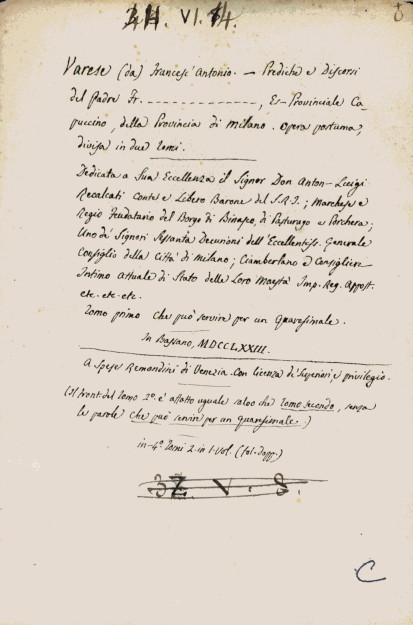 3H. VI. 14.
Varese (da) Francesc' Antonio. — Prediche e Discorsi
del Padre Fr. - - - - - - - - - - - - - - , Ex-Provinciale Ca-
puccino, della Provincia di Milano. Opera postuma,
divisa in due Tomi.
Dedicata a Sua Eccellenza il Signor Don Anton-Luigi
Recalcati Conte e Libero Barone del S.R.I.; Marchese e
Regio Feudatario del Borgo di Binasco, di Pasturago e Porchera;
Uno de' Signori Sessanta Decurioni dell'Eccellentiss. Generale
Consiglio della Città di Milano; Ciamberlano e Consigliere
Intimo Attuale di Stato delle Loro Maestà Imp. Reg. Apost.
etc. etc. etc.
Tomo primo che può servire per un Quaresimale.
In Bassano, MDCCLXXIII.
A spese Remondini di Venezia. Con licenza de' Superiori e privilegio.
(Il front. del Tomo 2º. è affatto uguale salvo che Tomo secondo, senza
le parole che può servire per un Quaresimale.)
in-4º. Tomi 2. in 1. Vol. (fol. dopp.)
3Z. V. 8.
C